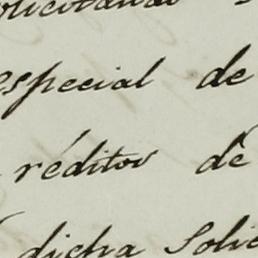 especial de
réditos de
dicha Solic